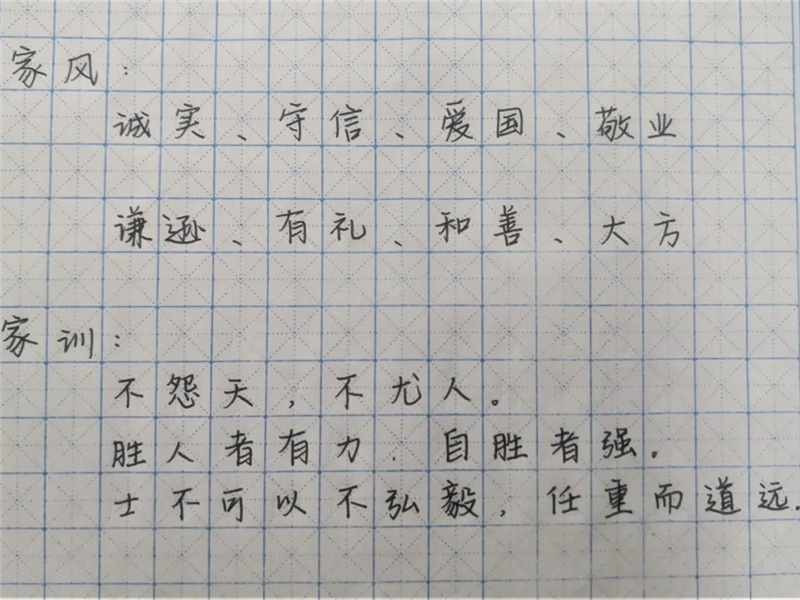 家风：
诚实、守信、爱国、敬业
谦逊、有礼、和善、大方
家训：
不怨天，不尤人。
胜人者有力，自胜者强。
士不可以不弘毅，任重而道远.